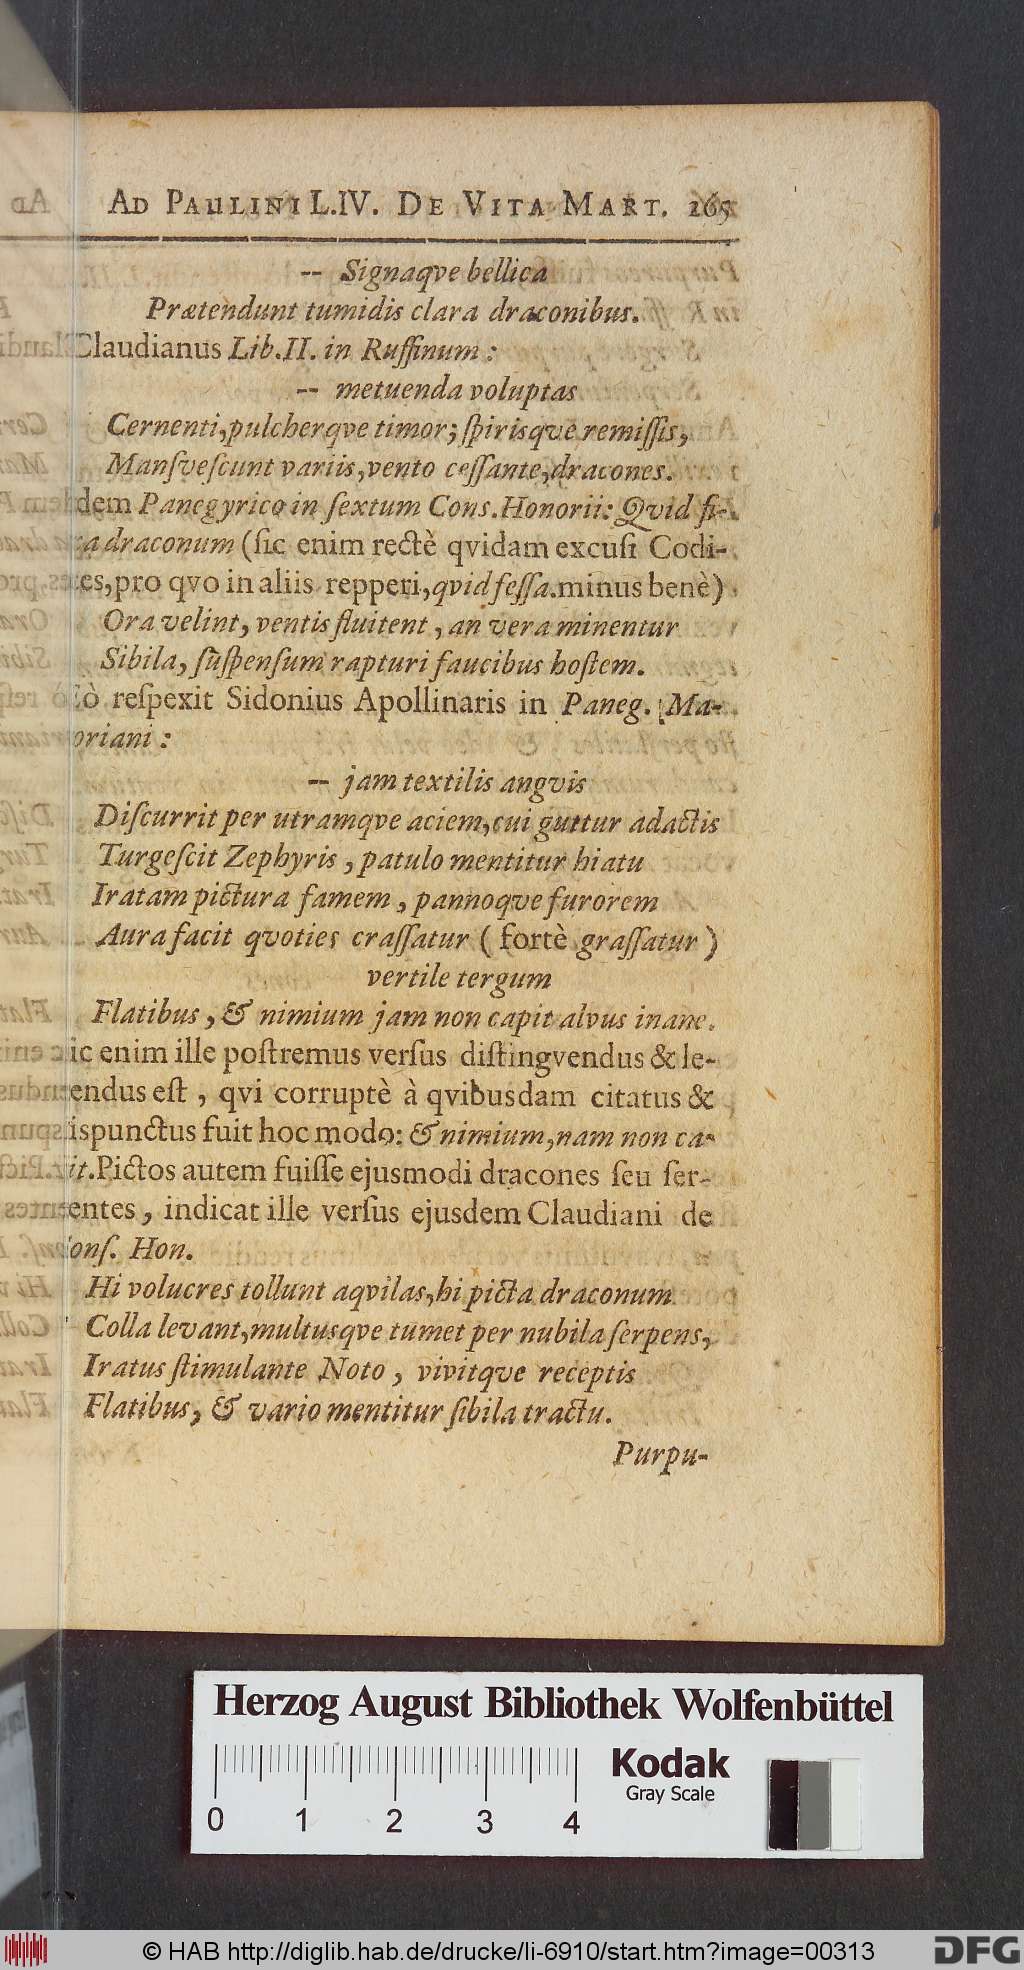 AD PAULINI L.IV. DE VITA MART. 265
-- Signaqve bellica
Prætendunt tumidis clara draconibus.
Claudianus Lib.II. in Ruffinum :
-- metuenda voluptas
Cernenti,pulcherqve timor; ſpirisqve remiſſis,
Manſveſcunt variis,vento ceſſante,dracones.
dem Panegyrico in ſextum Cons.Honorii: Qvid fi-
ra draconum (ſic enim rectè qvidam excuſi Codi-
ces,pro qvo in aliis repperi,qvid feſſa.minus benè)
Ora velint, ventis fluitent , an vera minentur
Sibila, ſuſpenſum rapturi faucibus hoſtem.
ò reſpexit Sidonius Apollinaris in Paneg. Ma-
oriani :
-- jam textilis angvis
Diſcurrit per utramqve aciem,cui guttur adactis
Turgeſcit Zephyris , patulo mentitur hiatu
Iratam pictura famem , pannoqve furorem
Aura facit qvoties craſſatur ( fortè graſſatur )
vertile tergum
Flatibus , & nimium jam non capit alvus inane.
ic enim ille poſtremus verſus diſtingvendus & le-
endus eſt , qvi corruptè à qvibusdam citatus &
iſpunctus fuit hoc modo: & nimium,nam non ca-
it. Pictos autem fuiſſe ejusmodi dracones ſeu ſer-
entes , indicat ille verſus ejusdem Claudiani de
onſ. Hon.
Hi volucres tollunt aqvilas,hi picta draconum
Colla levant,multusqve tumet per nubila ſerpens,
Iratus ſtimulante Noto , vivitqve receptis
Flatibus, & vario mentitur ſibila tractu.
Purpu-
Herzog August Bibliothek Wolfenbüttel
Kodak
Gray Scale
0 1 2 3 4
© HAB http://diglib.hab.de/drucke/li-6910/start.htm?image=00313
DFG